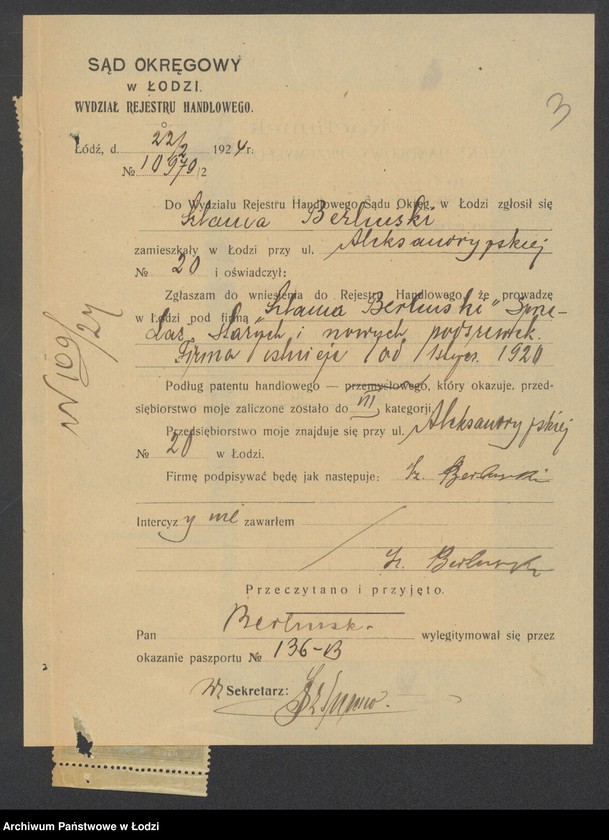 SĄD OKRĘGOWY
w ŁODZI.
WYDZIAŁ REJESTRU HANDLOWEGO.
3
Łódź, d. 22/2 1924 r.
№ 10979/2
Do Wydziału Rejestru Handlowego Sądu Okręg. w Łodzi zgłosił się
Szlama Berliński
zamieszkały w Łodzi przy ul. Aleksandryjskiej
№ 20 i oświadczył:
Zgłaszam do wniesienia do Rejestru Handlowego, że prowadzę
w Łodzi pod firmą "Szlama Berliński" Sprze-
daż starych i nowych podszewek.
Firma istnieje od 1920
Podług patentu handlowego — przemysłowego, który okazuje, przed-
siębiorstwo moje zaliczone zostało do VII kategorji
Przedsiębiorstwo moje znajduje się przy ul. Aleksandryjskiej
№ 20 w Łodzi.
Firmę podpisywać będę jak następuje: Sz. Berliński
Intercyzy nie zawarłem
Sz. Berliński
Przeczytano i przyjęto.
Pan Berliński wylegitymował się przez
okazanie paszportu № 136-B
Sekretarz:
109/24
Archiwum Państwowe w Łodzi